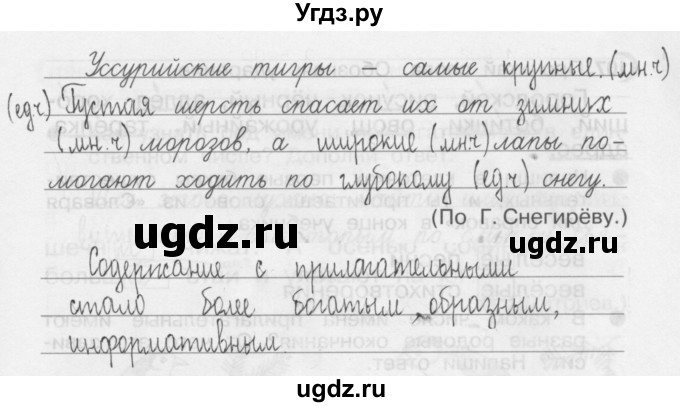 Угдз.ру
Уссурийские тигры – самые крупные. (мн.ч)
(ед.ч) Густая шерсть спасает их от зимних
(мн.ч) морозов, а широкие (мн.ч) лапы по-
могают ходить по глубокому (ед.ч) снегу.
(По Г. Снегирёву.)
ugdz.ru ugdz.ru
Содержание с прилагательными
стало более богатым, образным,
информативным.
ugdz.ru